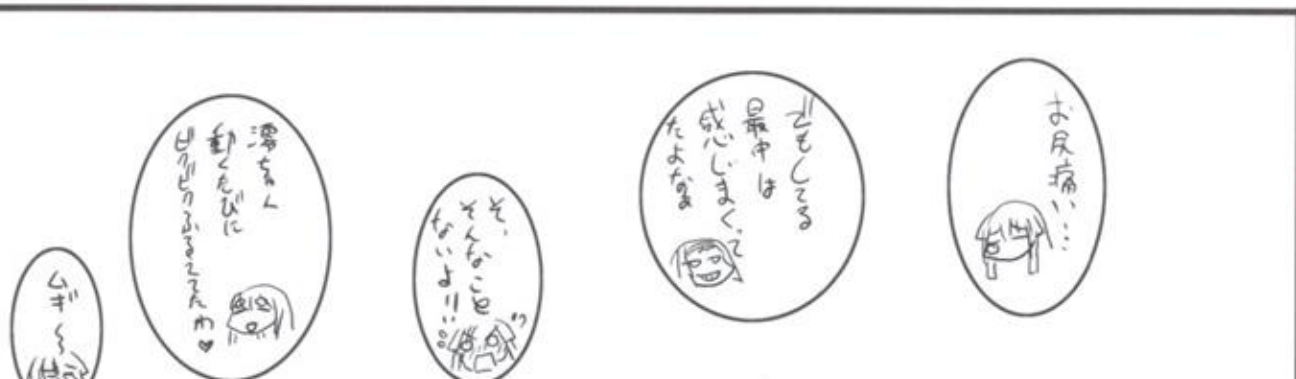 お尻痛い…
でもしてる
最中は
感じまくって
たよなぁ
そ、
そんなこと
ないよ!!
澪ちゃん
動くたびに
ビクビクふるえてたわ♥
ムギ~